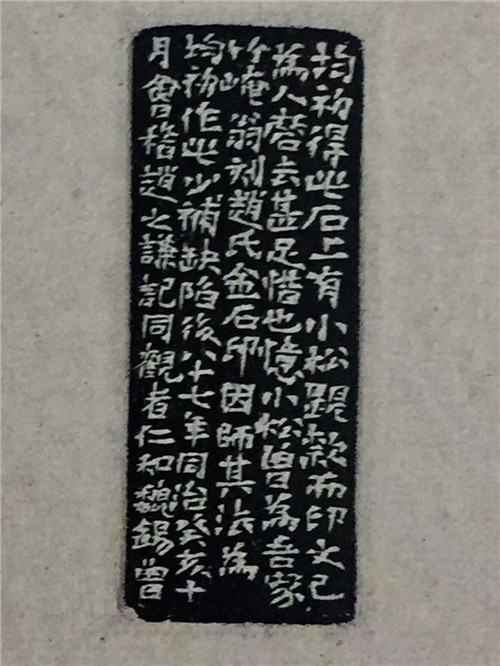 均初得此石上有小松觀款而印文已
為人磨去甚足惜也憶小松曾為吾家
竹崦翁刻趙氏金石印因師其法為
均初作此少補缺陷後八十七年同治癸亥十
月會稽趙之謙記同觀者仁和魏錫曾